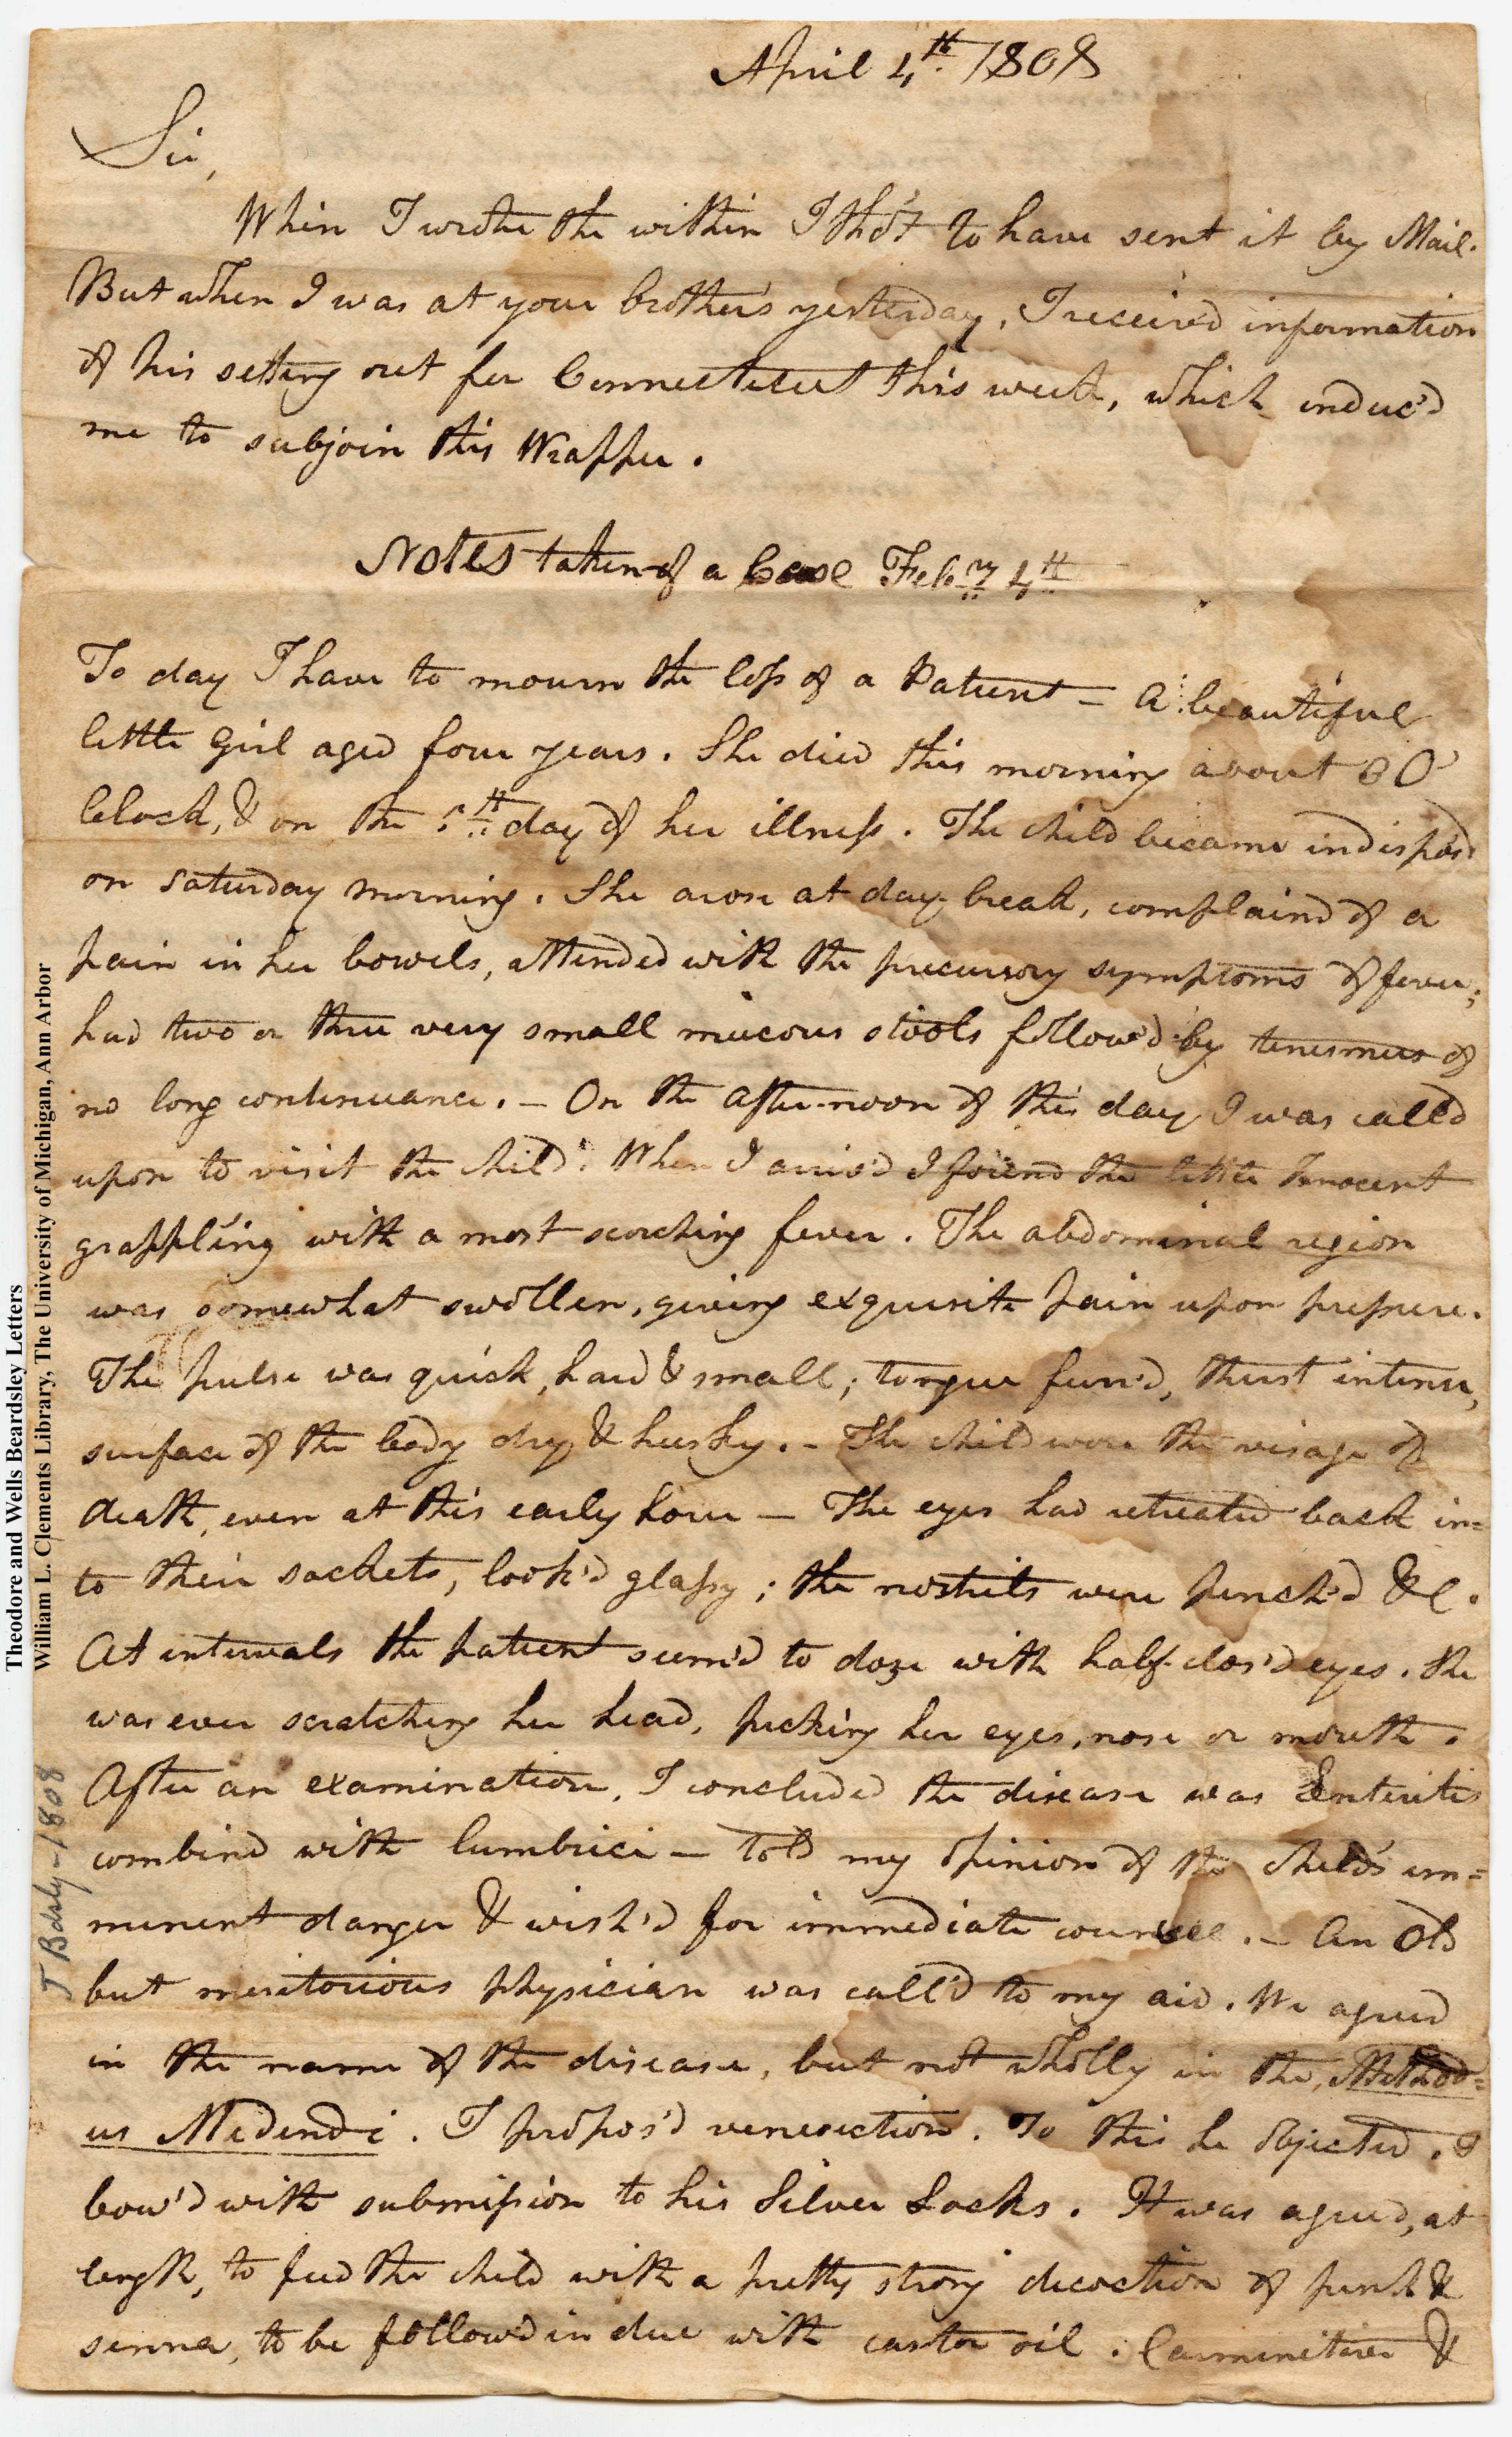 April 4th 1808
Sir,
When I wrote the within I tho't to have sent it by Mail.
But when I was at your brother's yesterday, I receiv'd information
of his setting out for Connecticut this week, which induc'd
me to subjoin this Wrapper.
Notes taken of a Case Feb.ry 4th
To day I have to mourn the loss of a Patient — A beautiful
little Girl aged four years. She died this morning about 8 O'
Clock, & on the 5th day of her illness. The child became indispos'd
on saturday morning. She arose at day-break, complain'd of a
pain in her bowels, attended with the precursory symptoms of fever;
had two or three very small mucous stools follow'd by tenesmus of
no long continuance. — On the after-noon of this day I was call'd
upon to visit the child. When I arriv'd I found the little Innocent
grappling with a most scorching fever. The abdominal region
was somewhat swollen, giving exquisite pain upon pressure.
The pulse was quick, hard & small; tongue furr'd, thirst intense,
surface of the body dry & husky. — The child wore the visage of
death, even at this early hour — The eyes had retreated back in=
to their sockets, look'd glassy; the nostrils were pinch'd &c.
At intervals the patient seem'd to doze with half-clos'd eyes. She
was ever scratching her head, picking her eyes, nose or mouth.
After an examination, I concluded the disease was Enteritis
combin'd with lumbrici — told my opinion of the child's im=
minent danger & wish'd for immediate counsel. — An old
but meritorious physician was call'd to my aid. We agreed
in the name of the disease, but not wholly in the Method=
us Medendi. I propos'd venesection. To this he objected. I
bow'd with submission to his Silver Locks. It was agreed, at
length, to feed the child with a pretty strong decoction of pink &
senna, to be follow'd in due with castor oil. Carminatives &
Theodore and Wells Beardsley Letters
William L. Clements Library, The University of Michigan, Ann Arbor
T Bdsly-1808